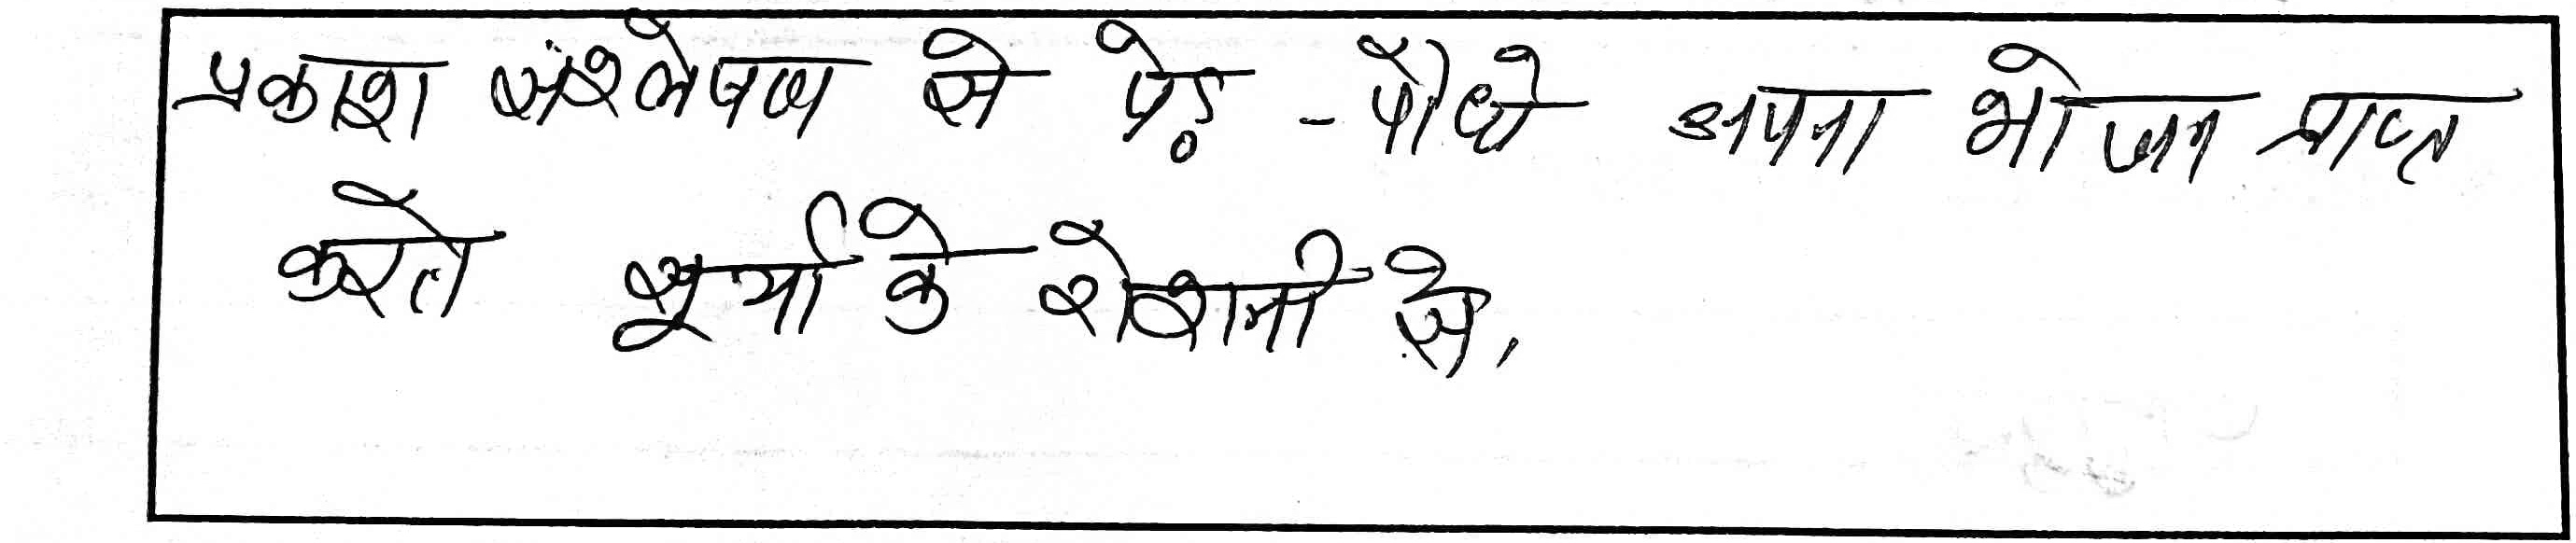 प्रकाश संश्लेषण से पेड़ -पौधे अपना भोजन प्राप्त
करते सूर्या के रोशनी से,